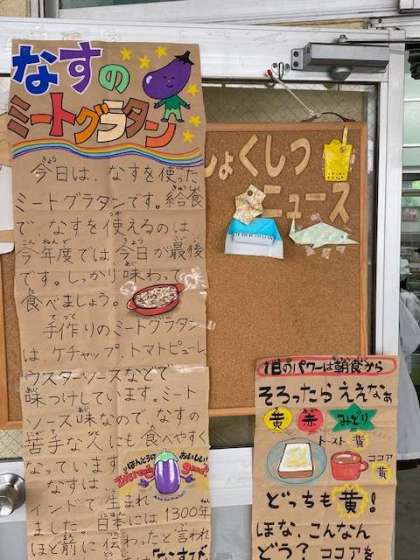 なすの
ミートグラタン
今日は、なすを使った
ミートグラタンです。給食
で、なすを使えるのは、
今年度では今日が最後
です。しっかり味わって
食べましょう。
手作りのミートグラタン
は、ケチャップ、トマトピューレ
ウスターソースなどで
味つけしています。ミート
ソース味なので、なすの
苦手な人にも食べやすく
なっています
なすは、
インドで生まれ
ました。日本には1300年
ほど前に伝わったと言われ
ほんとうに
おいしい!
しょくしつ
ニュース
1日のパワーは朝食から
そろったらええなぁ
黄 赤 みどり
トースト 黄
ココア 黄
どっちも黄!
ほな、こんなん
どう?ココアを